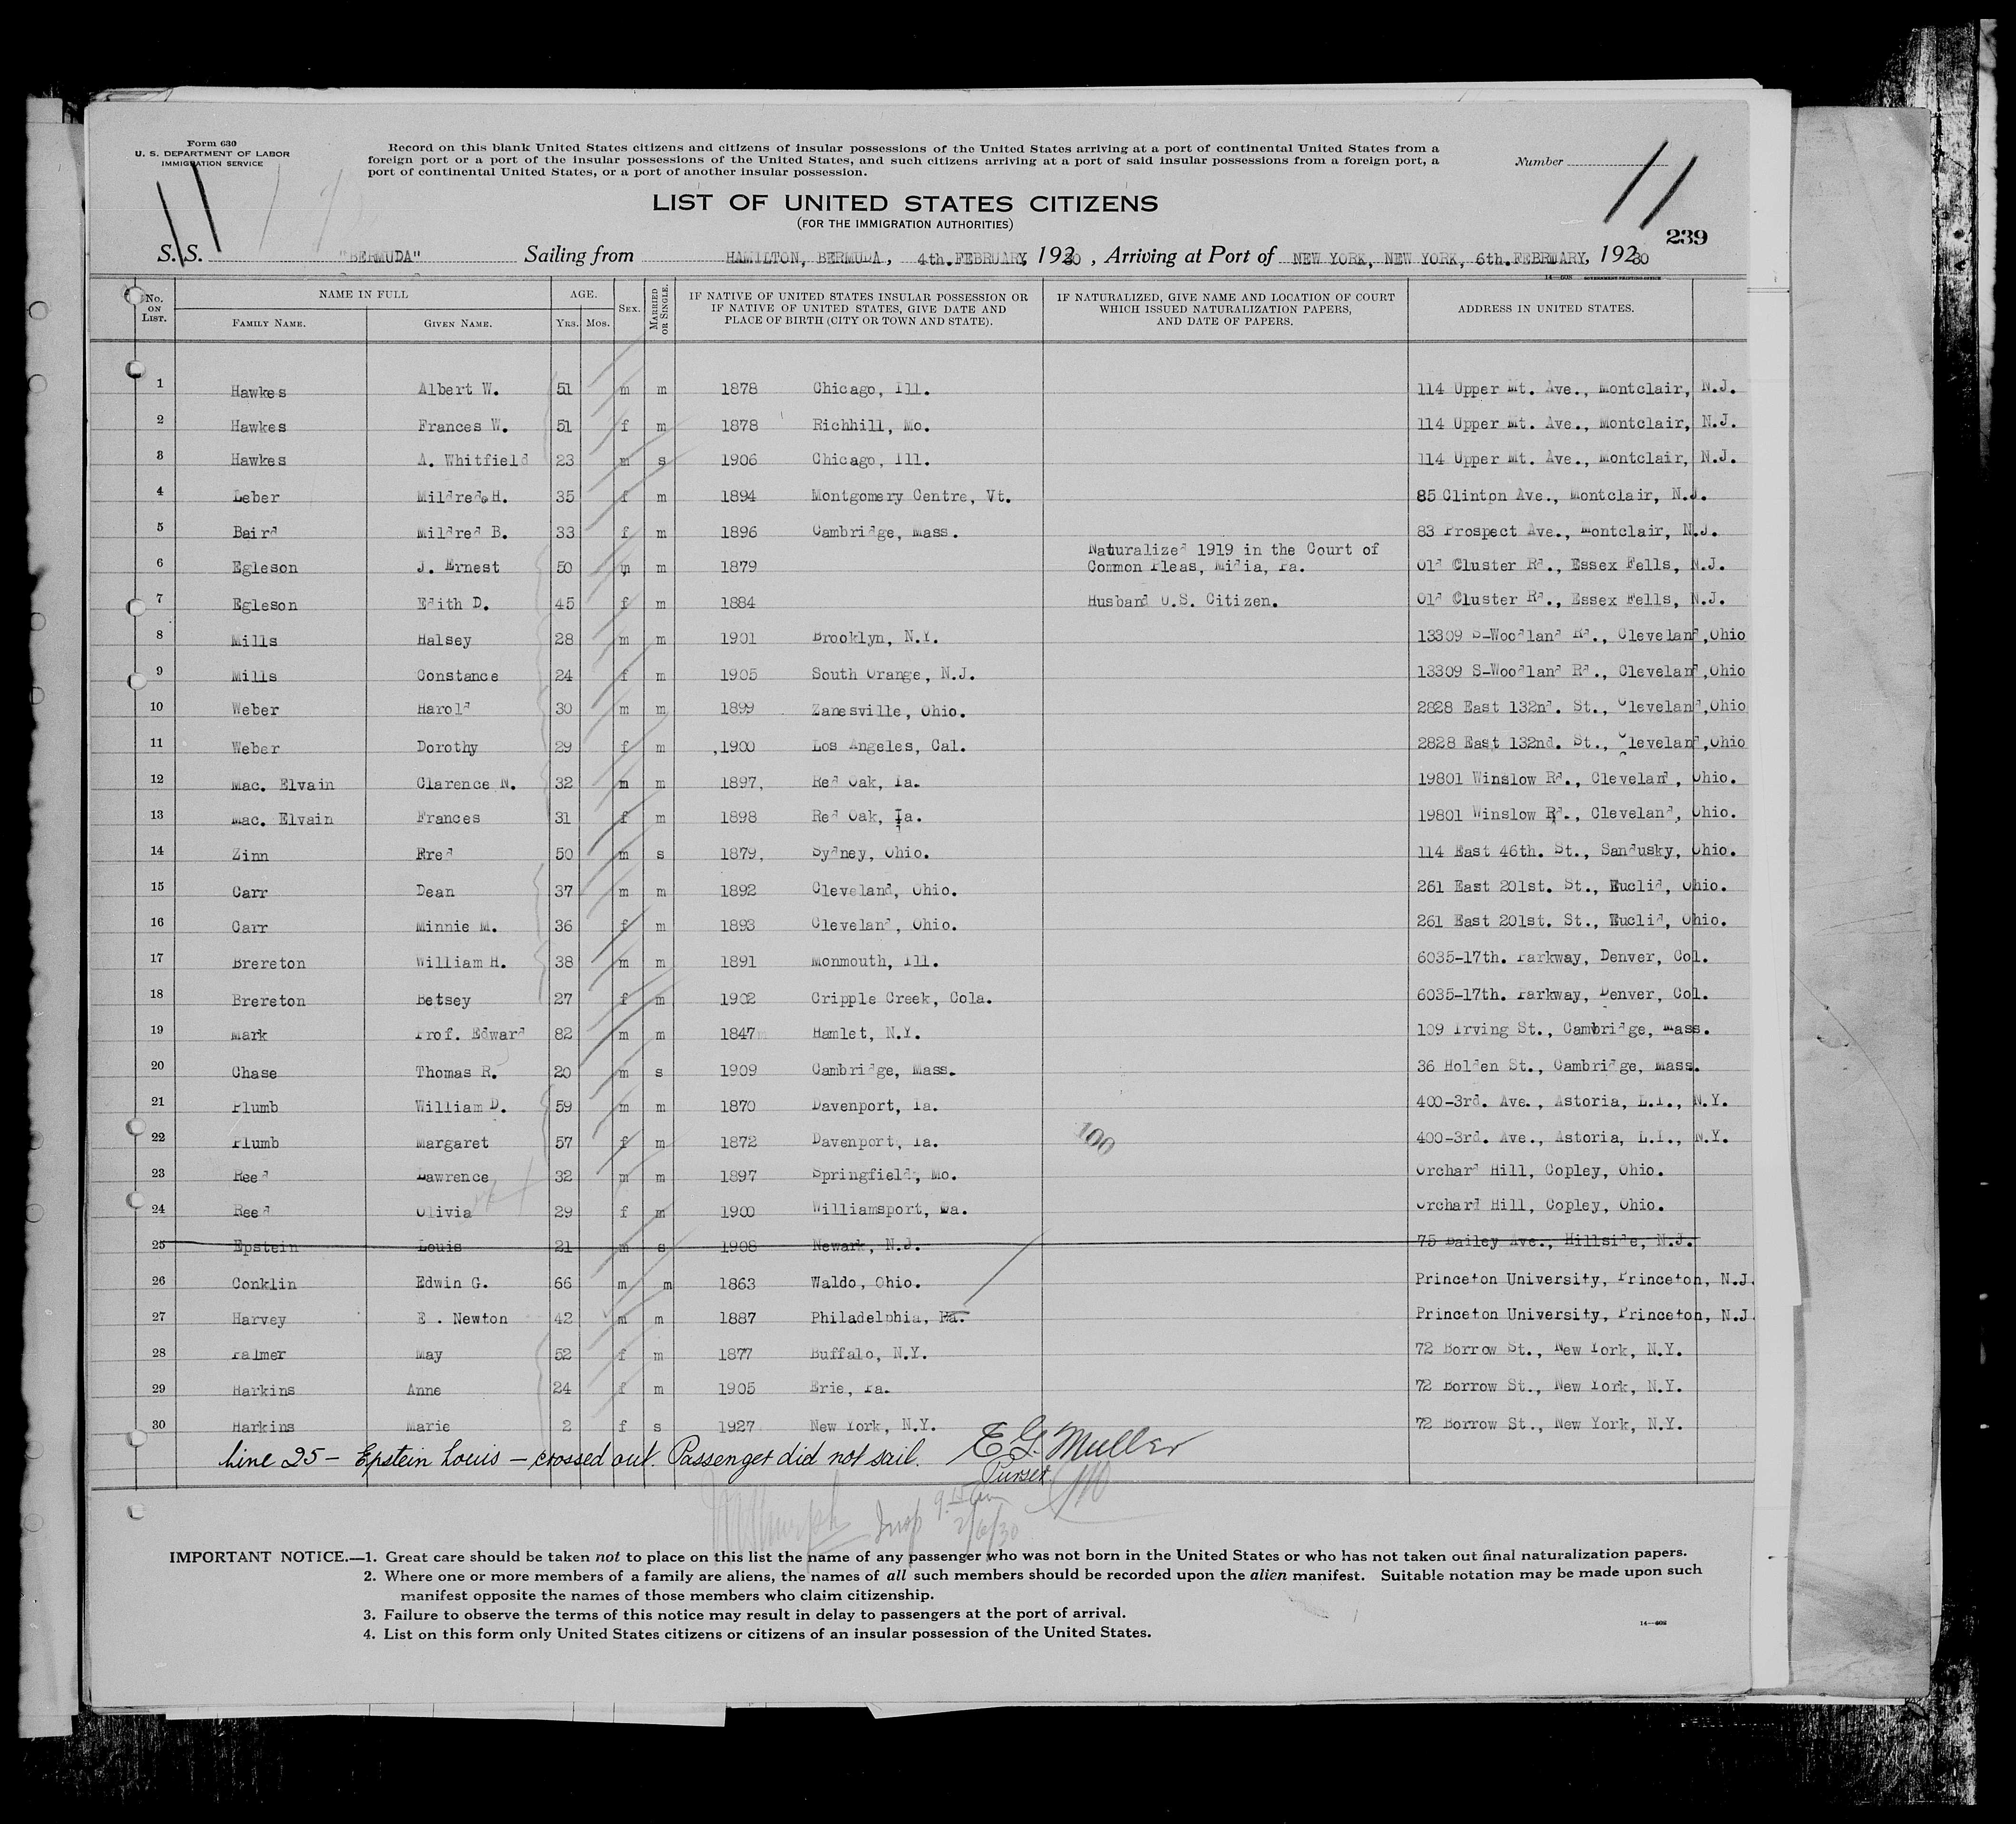 Form 630
U. S. DEPARTMENT OF LABOR
IMMIGRATION SERVICE
Record on this blank United States citizens and citizens of insular possessions of the United States arriving at a port of continental United States from a
foreign port or a port of the insular possessions of the United States, and such citizens arriving at a port of said insular possessions from a foreign port, a
port of continental United States, or a port of another insular possession.
Number
11
11
LIST OF UNITED STATES CITIZENS
(FOR THE IMMIGRATION AUTHORITIES)
239
S. S. "BERMUDA" Sailing from HAMILTON, BERMUDA, 4th.FEBRUARY, 19230, Arriving at Port of NEW YORK, NEW YORK, 6th.FEBRUARY, 19230
14—508 GOVERNMENT PRINTING OFFICE
No. ON LIST. NAME IN FULL FAMILY NAME. GIVEN NAME. AGE. YRS. MOS. SEX. MARRIED OR SINGLE. IF NATIVE OF UNITED STATES INSULAR POSSESSION OR IF NATIVE OF UNITED STATES, GIVE DATE AND PLACE OF BIRTH (CITY OR TOWN AND STATE). IF NATURALIZED, GIVE NAME AND LOCATION OF COURT WHICH ISSUED NATURALIZATION PAPERS, AND DATE OF PAPERS. ADDRESS IN UNITED STATES.
1 Hawkes Albert W. 51 m m 1878 Chicago, Ill. 114 Upper Mt. Ave., Montclair, N.J.
2 Hawkes Frances W. 51 f m 1878 Richhill, Mo. 114 Upper Mt. Ave., Montclair, N.J.
3 Hawkes A. Whitfield 23 m s 1906 Chicago, Ill. 114 Upper Mt. Ave., Montclair, N.J.
4 Leber Mildred H. 35 f m 1894 Montgomery Centre, Vt. 85 Clinton Ave., Montclair, N.J.
5 Baird Mildred B. 33 f m 1896 Cambridge, Mass. 83 Prospect Ave., Montclair, N.J.
6 Egleson J. Ernest 50 m m 1879 Naturalized 1919 in the Court of Common Pleas, Midia, Pa. Old Cluster Rd., Essex Fells, N.J.
7 Egleson Edith D. 45 f m 1884 Husband U.S. Citizen. Old Cluster Rd., Essex Fells, N.J.
8 Mills Halsey 28 m m 1901 Brooklyn, N.Y. 13309 S-Woodland Rd., Cleveland,Ohio
9 Mills Constance 24 f m 1905 South Orange, N.J. 13309 S-Woodland Rd., Cleveland,Ohio
10 Weber Harold 30 m m 1899 Zanesville, Ohio. 2828 East 132nd. St., Cleveland,Ohio
11 Weber Dorothy 29 f m 1900 Los Angeles, Cal. 2828 East 132nd. St., Cleveland,Ohio
12 Mac. Elvain Clarence N. 32 m m 1897, Red Oak, Ia. 19801 Winslow Rd., Cleveland, Ohio.
13 Mac. Elvain Frances 31 f m 1898 Red Oak, Ia. 19801 Winslow Rd., Cleveland, Ohio.
14 Zinn Fred 50 m s 1879, Sydney, Ohio. 114 East 46th. St., Sandusky, Ohio.
15 Carr Dean 37 m m 1892 Cleveland, Ohio. 261 East 201st. St., Euclid, Ohio.
16 Carr Minnie M. 36 f m 1893 Cleveland, Ohio. 261 East 201st. St., Euclid, Ohio.
17 Brereton William H. 38 m m 1891 Monmouth, Ill. 6035-17th. Parkway, Denver, Col.
18 Brereton Betsey 27 f m 1902 Cripple Creek, Cola. 6035-17th. Parkway, Denver, Col.
19 Mark Prof. Edward 82 m m 1847 Hamlet, N.Y. 109 Irving St., Cambridge, Mass.
20 Chase Thomas R. 20 m s 1909 Cambridge, Mass. 36 Holden St., Cambridge, Mass.
21 Plumb William D. 59 m m 1870 Davenport, Ia. 400-3rd. Ave., Astoria, L.I., N.Y.
22 Plumb Margaret 57 f m 1872 Davenport, Ia. 100 400-3rd. Ave., Astoria, L.I., N.Y.
23 Reed Lawrence 32 m m 1897 Springfield, Mo. Orchard Hill, Copley, Ohio.
24 Reed Olivia 29 f m 1900 Williamsport, Pa. Orchard Hill, Copley, Ohio.
25 Epstein Louis 21 m s 1908 Newark, N.J. 75 Bailey Ave., Hillside, N.J.
26 Conklin Edwin G. 66 m m 1863 Waldo, Ohio. Princeton University, Princeton, N.J.
27 Harvey E . Newton 42 m m 1887 Philadelphia, Pa. Princeton University, Princeton, N.J.
28 Palmer May 52 f m 1877 Buffalo, N.Y. 72 Borrow St., New York, N.Y.
29 Harkins Anne 24 f m 1905 Erie, Pa. 72 Borrow St., New York, N.Y.
30 Harkins Marie 2 f s 1927 New York, N.Y. 72 Borrow St., New York, N.Y.
Line 25 – Epstein Louis – crossed out. Passenger did not sail. E G Muller
Purser
Insp 9.15 am
2/6/30
IMPORTANT NOTICE.—1. Great care should be taken not to place on this list the name of any passenger who was not born in the United States or who has not taken out final naturalization papers.
2. Where one or more members of a family are aliens, the names of all such members should be recorded upon the alien manifest. Suitable notation may be made upon such
manifest opposite the names of those members who claim citizenship.
3. Failure to observe the terms of this notice may result in delay to passengers at the port of arrival.
4. List on this form only United States citizens or citizens of an insular possession of the United States.
14—508